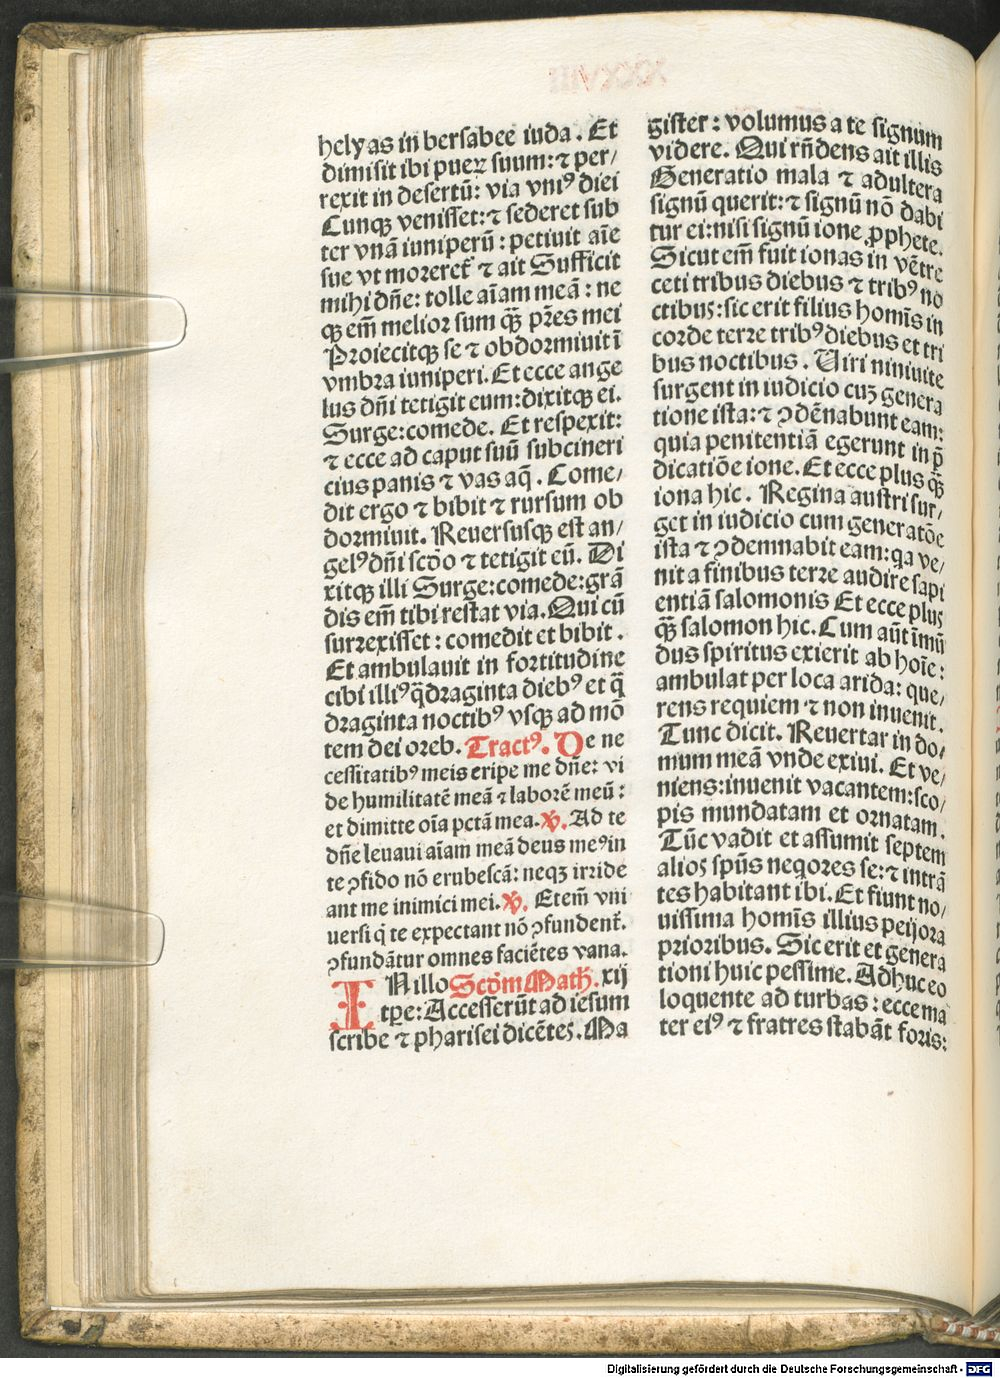 helyas in bersabee iuda . Et
dimisit ibi pueꝝ suum: ⁊ per/
rexit in desertū: via vniꝰ diei
Cunqꝫ venisset: ⁊ sederet sub
ter vnā iuniperū : petiuit aīe
sue vt moreret᷑ ⁊ ait Sufficit
mihi dn̄e: tolle aīam meā : ne
qꝫ em̄ melior sum qꝫ̄ pr̄es mei
Proiecitqꝫ se ⁊ obdormiuit ī
vmbra iuniperi. Et ecce ange
lus dn̄i tetigit eum: dixitqꝫ ei.
Surge: comede. Et respexit:
⁊ ecce ad caput suū subcineri
cius panis ⁊ vas aq̄ . Come/
dit ergo ⁊ bibit ⁊ rursum ob
dormiuit. Reuersusqꝫ est an/
gelꝰ dn̄i scd̄o ⁊ tetigit eū. Di
xitqꝫ illi Surge: comede: grā
dis em̄ tibi restat via. Qui cū
surrexisset : comedit et bibit .
Et ambulauit in fortitudine
cibi illiꝰ q̄draginta diebꝰ et q̄
draginta noctibꝰ vsqꝫ ad mō
tem dei oreb. Tractꝰ. De ne
cessitatibꝰ meis eripe me dn̄e: vi
de humilitatē meā ⁊ laborē meū :
et dimitte oīa pctā mea. ℣. Ad te
dn̄e leuaui aīam meā deus meꝰ in
te ꝯfido nō erubescā: neqꝫ irride
ant me inimici mei. ℣. Etem̄ vni
uersi q̄ te expectant nō ꝯfundent᷑.
ꝯfundātur omnes faciētes vana.
IN illo Scd̄m Math̄. xij
tꝑe: Accesserūt ad iesum
scribe ⁊ pharisei dicētes. Ma
gister : volumus a te signum
videre. Qui rn̄dens ait illis
Generatio mala ⁊ adultera
signū querit: ⁊ signū nō dabi
tur ei: nisi signū ione ꝓphete.
Sicut em̄ fuit ionas in vētre
ceti tribus diebus ⁊ tribꝰ no
ctibus: sic erit filius homīs in
corde terre tribꝰ diebus et tri
bus noctibus . Viri niniuite
surgent in iudicio cuꝫ genera
tione ista: ⁊ ꝯdēnabunt eam:
quia penitentiā egerunt in p̄
dicatiōe ione. Et ecce plus qꝫ̄
iona hic . Regina austri sur/
get in iudicio cum generatōe
ista ⁊ ꝯdemnabit eam: qa ve/
nit a finibus terre audire sapi
entiā salomonis Et ecce plus
qꝫ̄ salomon hic. Cum aūt īmū
dus spiritus exierit ab hoīe :
ambulat per loca arida: que/
rens requiem ⁊ non inuenit.
Tunc dicit. Reuertar in do/
mum meā vnde exiui. Et ve/
niens: inuenit vacantem: sco/
pis mundatam et ornatam.
Tūc vadit et assumit septem
alios spūs neqores se: ⁊ intrā
tes habitant ibi. Et fiunt no/
uissima homīs illius peiora
prioribus. Sic erit et genera
tioni huic pessime. Adhuc eo
loquente ad turbas : ecce ma
ter eiꝰ ⁊ fratres stabāt foris:
Digitalisierung gefördert durch die Deutsche Forschungsgemeinschaft - DFG